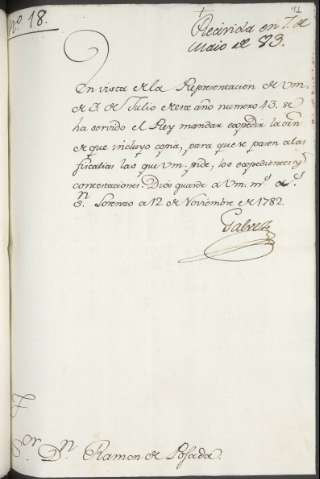 nº 18.
Recivida en 7. de
Maio de 83.
En vista de la Representacion de Vm.
de 3. de Julio de este año numero 43. se
ha servido el Rey mandar expedir la orn
de que incluyo copia, para que se pasen a las
fiscalias las que Vm. pide, los expedientes y
contestaciones. Dios guarde a Vm. m.s a.s
Sn. Lorenzo a 12 de Noviembre de 1782.
Galvez
Sor. Dn. Ramon de Posada.